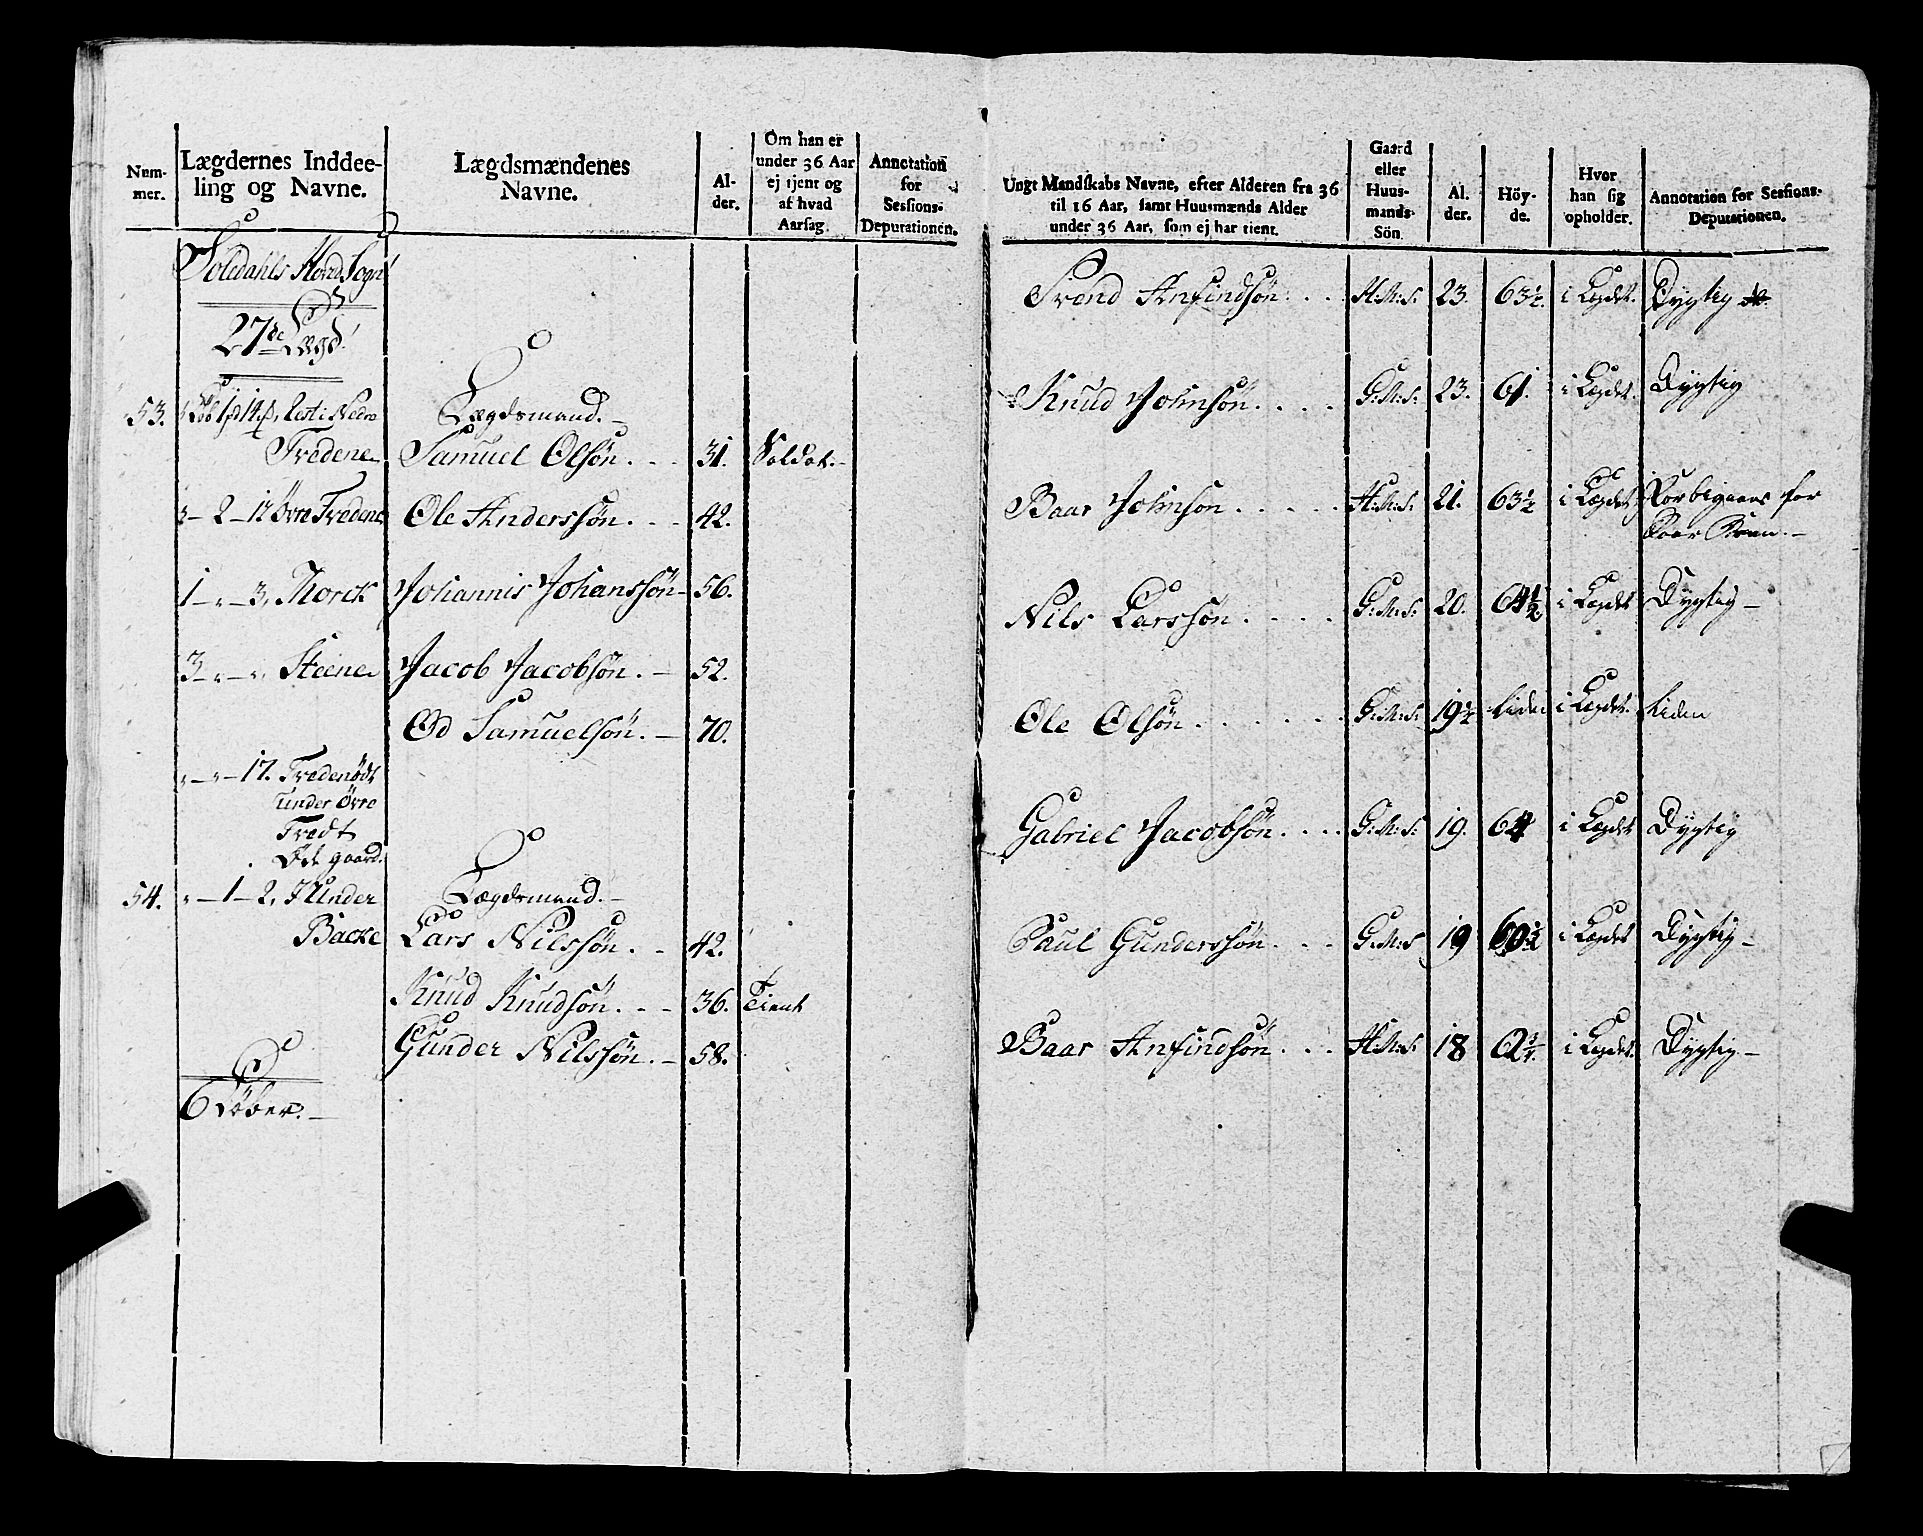 Num-
mer.
Lægdernes Inddee-
ling og Navne.
Lægdsmændenes
Navne.
Al-
der.
Om han er
under 36 Aar
ej tjent og
af hvad
Aarsag
Annotation
for
Sessions-
Deputationen.
Soledahls Hovd Sogn
27de Lægd
53. 1 st: Nedre
Lægdsmand.
Tredene Samuel Olsøn. 31. Soldat.
2 - 12 Øvre Tredene Ole Anderssøn. 42.
1 - " - 3, Norck Johannis Johanssøn 56.
3 - " - " Steene Jacob Jacobsøn. 52.
Od Samuelsøn. 70.
" - " - 17. Tredenødt
under Øvre
Tredt
Øde gaard.
54. " - 1 - 2, Hunder Lægdsmand.
Backe Lars Nilssøn. 42.
Knud Knudsøn. 36. Tient
Gunder Nilssøn. 58.
6 Løber.
Ungt Mandskabs Navne, efter Alderen fra 36
til 16 Aar, samt Huusmænds Alder
under 36 Aar, som ej har tient.
Gaard
eller
Huus-
mands-
Sön
Al-
der.
Höy-
de.
Hvor
han sig
opholder.
Annotation for Sessions-
Deputationen.
Svend Anfindsøn. H:M:S: 23. 63 1/2. i Lægdet. Dygtig
Knud Johnsøn. G:M:S: 23. 61. i Lægdet. Dygtig
Baar Johnsøn H:M:S: 21. 63 1/2 i Lægdet Forbigaaes for
Nils Larssøn. G:M:S: 20. 64 1/2 i Lægdet Dygtig
Ole Olsøn. G:M:S: 19 1/2 liden i Lægdet. liden
Gabriel Jacobsøn. G:M:S: 19. 64 i Lægdet Dygtig
Paul Gunderssøn. G:M:S 19 60 i Lægdet Dygtig
Baar Anfindsøn. H:M:S: 18 i Lægdet. Dygtig